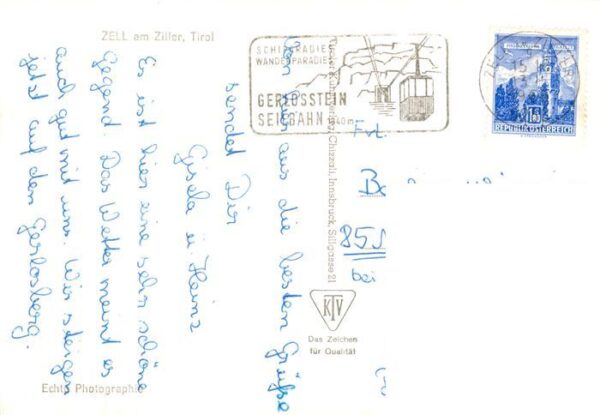 ZELL am Ziller, Tirol
SCHIPARADIES
WANDERPARADIES
GERLOSSTEIN
SEILBAHN 1640m
REPUBLIK ÖSTERREICH
1.80
Von hier aus die besten Grüße
sendet Dir
Gisela u. Heinz
Es ist hier eine sehr schöne
Gegend. Das Wetter meint es
auch gut mit uns. Wir steigen
jetzt auf den Gerlosberg.
Frl.
B
851
bei
Chizzali, Innsbruck, Sillgasse 21
KTV
Das Zeichen
für Qualität
Echte Photographie